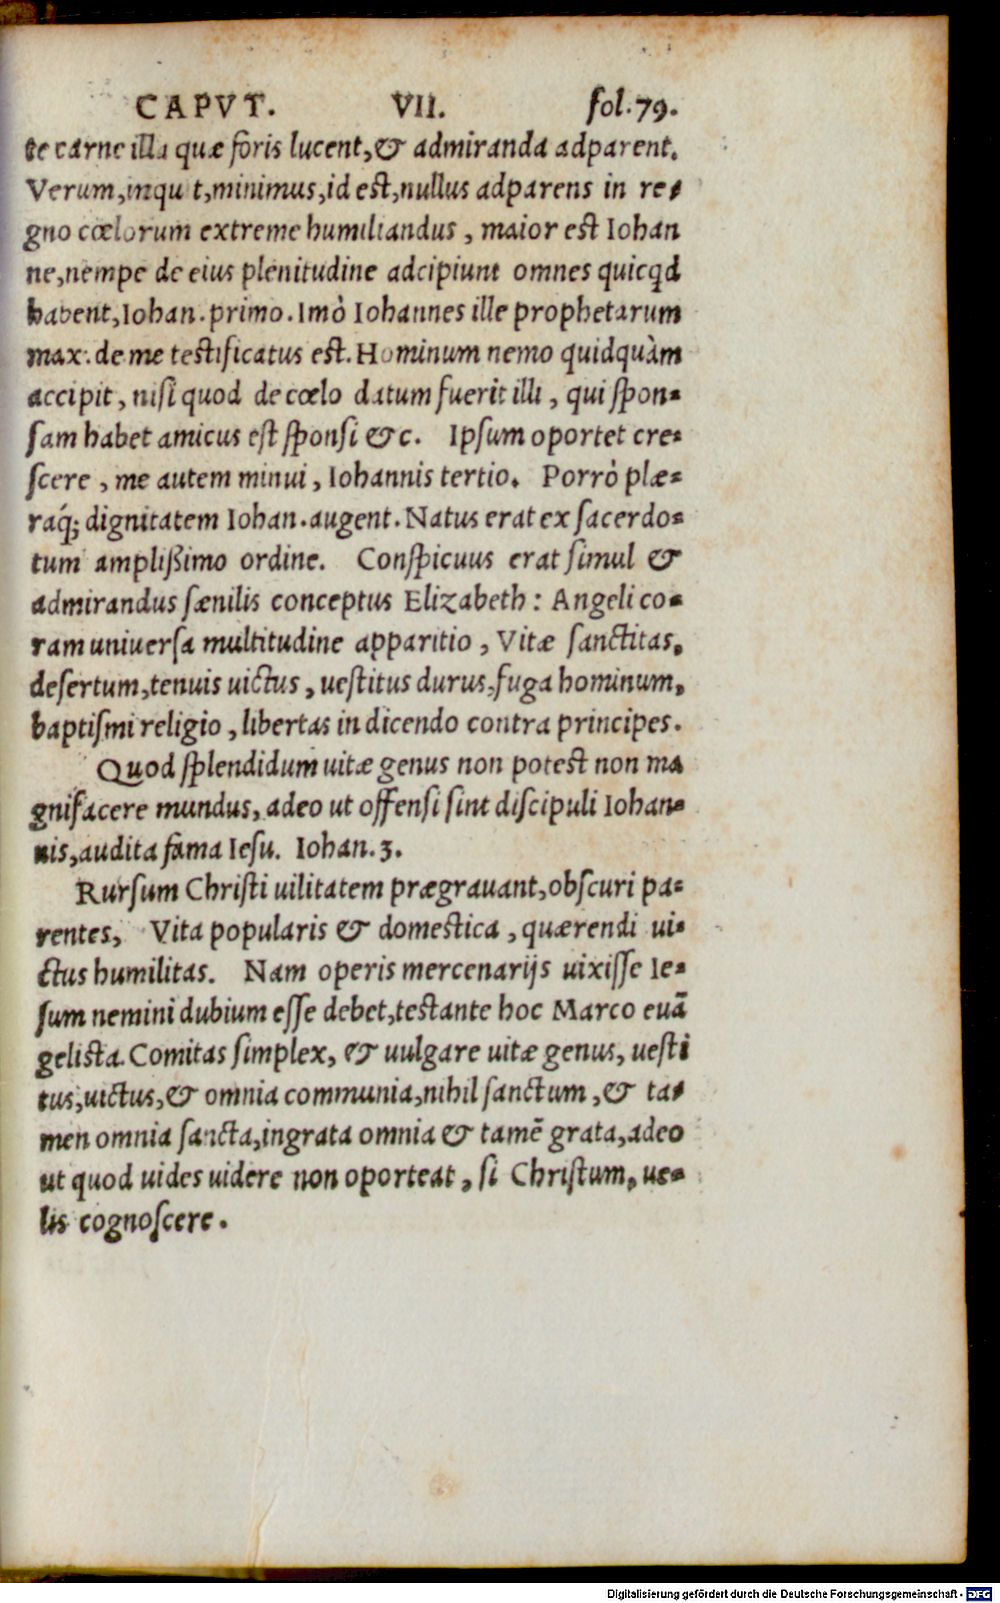 CAPVT. VII. fol. 79.
te carne illa quæ foris lucent, & admiranda adparent.
Verum, inquit, minimus, id est, nullus adparens in re-
gno cœlorum extreme humiliandus, maior est Iohan
ne, nempe de eius plenitudine adcipiunt omnes quicq̃d
habent, Iohan. primo. Imò Iohannes ille prophetarum
max. de me testificatus est. Hominum nemo quidquàm
accipit, nisi quod de cœlo datum fuerit illi, qui spon-
sam habet amicus est sponsi &c. Ipsum oportet cre-
scere, me autem minui, Iohannis tertio. Porrò plæ-
raq́; dignitatem Iohan. augent. Natus erat ex sacerdo-
tum amplißimo ordine. Conspicuus erat simul &
admirandus sænilis conceptus Elizabeth: Angeli co-
ram uniuersa multitudine apparitio, Vitæ sanctitas,
desertum, tenuis uictus, uestitus durus, fuga hominum,
baptismi religio, libertas in dicendo contra principes.
Quod splendidum uitæ genus non potest non ma
gnifacere mundus, adeo ut offensi sint discipuli Iohan-
nis, audita fama Iesu. Iohan. 3.
Rursum Christi uilitatem prægrauant, obscuri pa-
rentes, Vita popularis & domestica, quærendi ui-
ctus humilitas. Nam operis mercenarijs uixisse Ie-
sum nemini dubium esse debet, testante hoc Marco euā
gelista. Comitas simplex, & uulgare uitæ genus, uesti
tus, uictus, & omnia communia, nihil sanctum, & ta-
men omnia sancta, ingrata omnia & tamē grata, adeo
ut quod uides uidere non oporteat, si Christum, ue-
lis cognoscere.
Digitalisierung gefördert durch die Deutsche Forschungsgemeinschaft - DFG